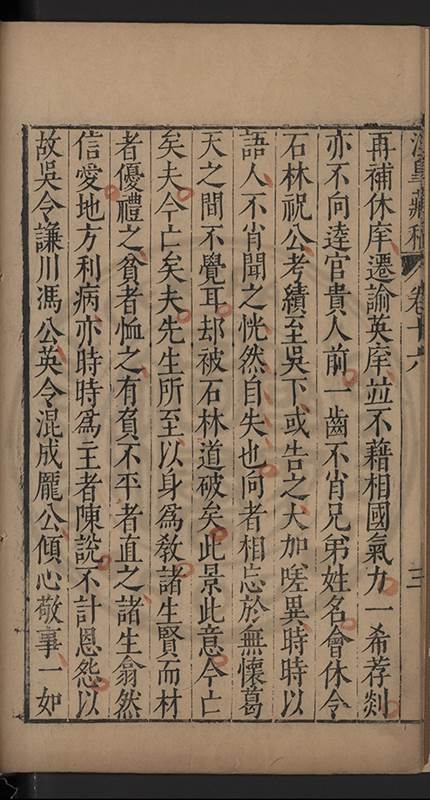 再補休庠遷諭英庠並不藉相國氣力一希荐剡
亦不向逹官貴人前一齒不肖兄弟姓名會休令
石林祝公考績至吳下或告之大加嗟異時時以
語人不肖聞之恍然自失也向者相忘於無懷葛
天之間不覺耳却被石林道破矣此景此意今亡
矣夫今亡矣夫先生所至以身爲敎諸生賢而材
者優禮之貧者恤之有負不平者直之諸生翕然
信愛地方利病亦時時爲主者陳說不計恩怨以
故吳令謙川馮公英令混成龎公傾心敬事一如